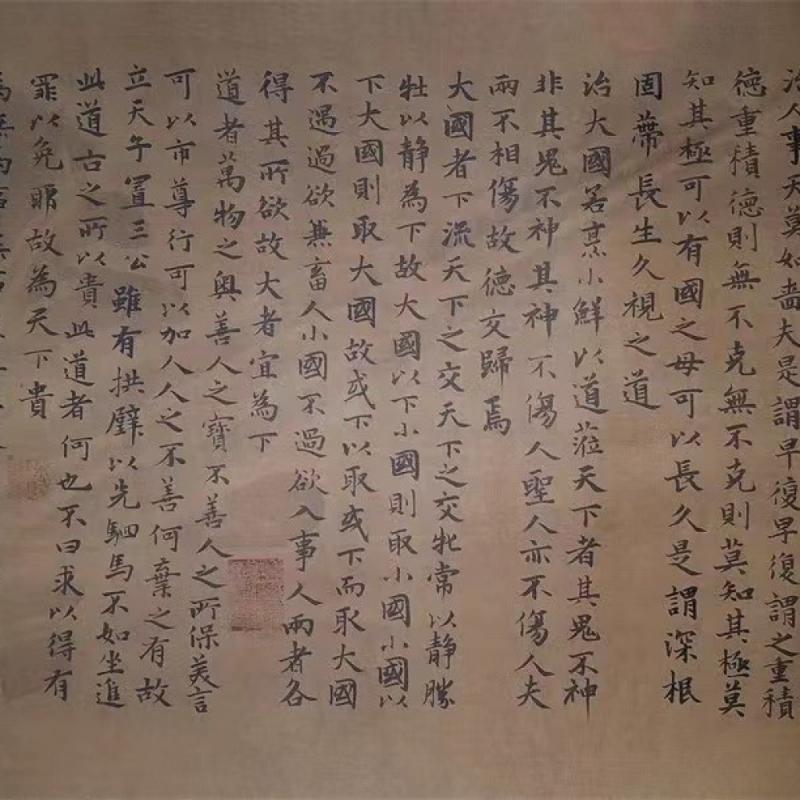 治人事天莫如嗇夫是謂早復早復謂之重積
德重積德則無不克無不克則莫知其極莫
知其極可以有國之母可以長久是謂深根
固蔕長生久視之道
治大國若烹小鮮以道蒞天下者其鬼不神
非其鬼不神其神不傷人聖人亦不傷人夫
兩不相傷故德交歸焉
大國者下流天下之交天下之交牝常以静勝
牡以静為下故大國以下小國則取小國小國以
下大國則取大國故或下以取或下而取大國
不過過欲兼畜人小國不過欲入事人兩者各
得其所欲故大者宜為下
道者萬物之奥善人之寶不善人之所保美言
可以市尊行可以加人人之不善何棄之有故
立天子置三公雖有拱璧以先駟馬不如坐進
此道古之所以貴此道者何也不曰求以得有
罪以免耶故為天下貴